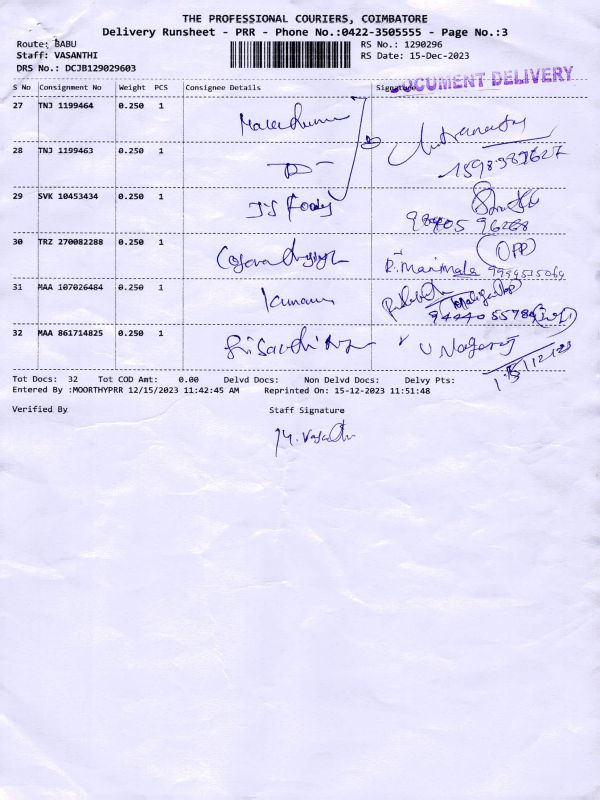 THE PROFESSIONAL COURIERS, COIMBATORE
Delivery Runsheet - PRR - Phone No.:0422-3505555 - Page No.:3
Route: BABU
RS No.: 1290296
Staff: VASANTHI
RS Date: 15-Dec-2023
DRS No.: DCJB129029603
DOCUMENT DELIVERY
S No Consignment No Weight PCS Consignee Details Signature
27 TNJ 1199464 0.250 1
28 TNJ 1199463 0.250 1
29 SVK 10453434 0.250 1
96268
30 TRZ 270082288 0.250 1
OPP
R. Manimala
31 MAA 107026484 0.250 1 Kannan
32 MAA 861714825 0.250 1
V Nagaraj
Tot Docs: 32 Tot COD Amt: 0.00 Delvd Docs: Non Delvd Docs: Delvy Pts:
Entered By :MOORTHYPRR 12/15/2023 11:42:45 AM Reprinted On: 15-12-2023 11:51:48
Verified By Staff Signature